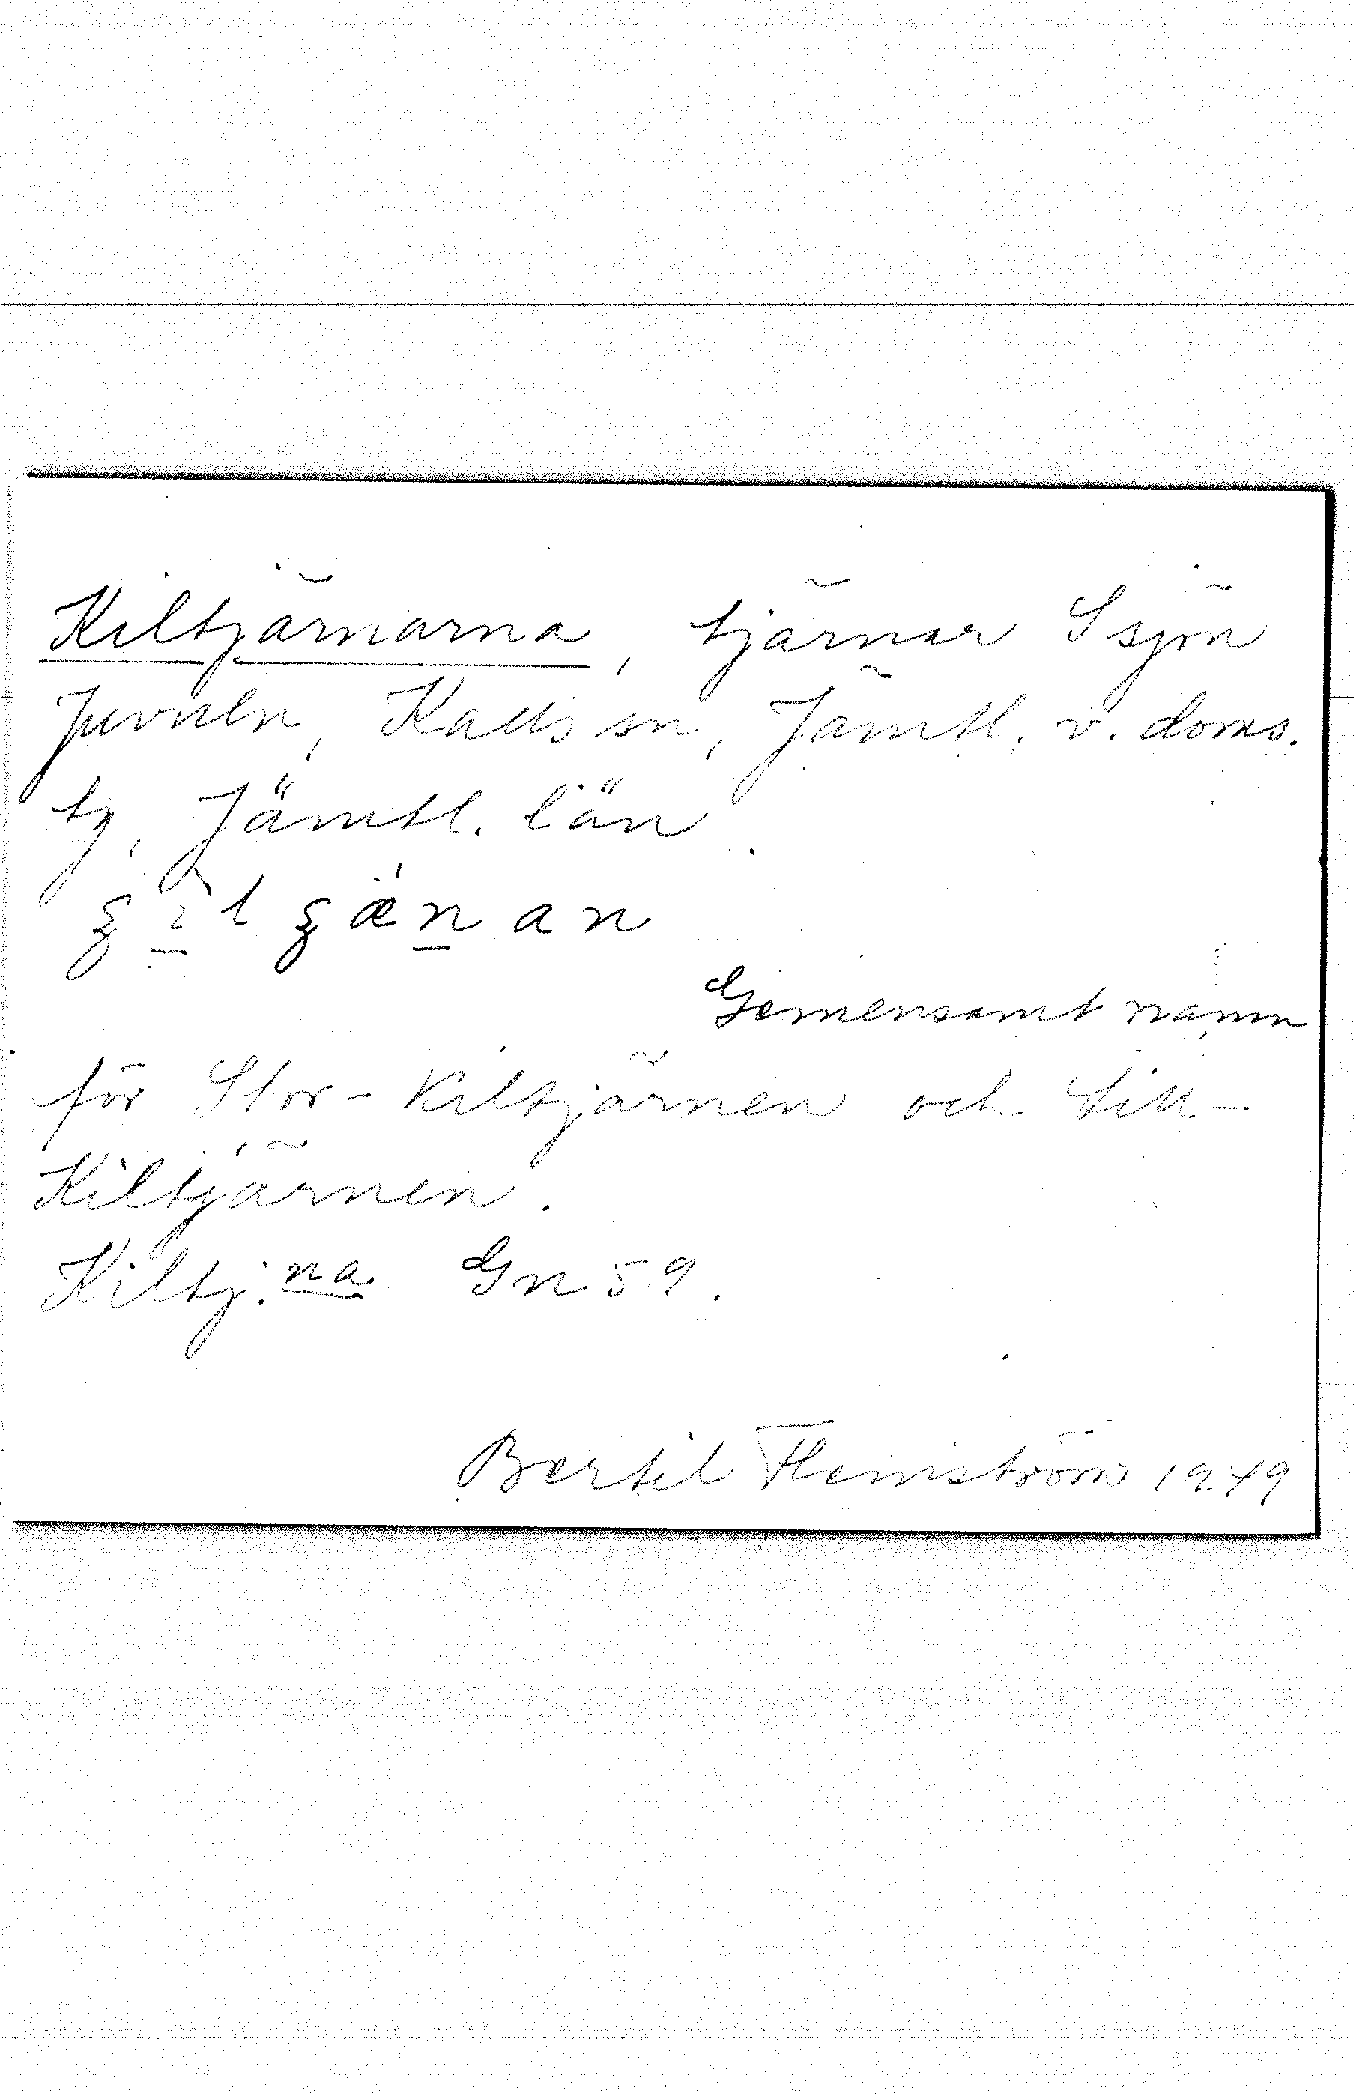 Kiltjärnarna, tjärnar S sjön
Juvuln, Kalls sn, Jämtl. v. doms.
tg, Jämtl. län.
Gemensamt namn
för Stor-Kiltjärnen och Lill-
Kiltjärnen.
Kiltj.na Gn 59.
Bertil Flemström 1949